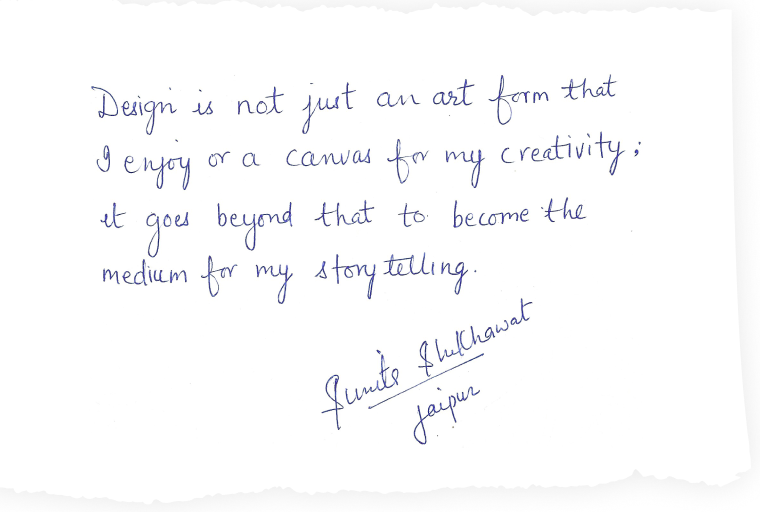 Design is not just an art form that
I enjoy or a canvas for my creativity;
it goes beyond that to become the
medium for my storytelling.
Sunita Shekhawat
Jaipur